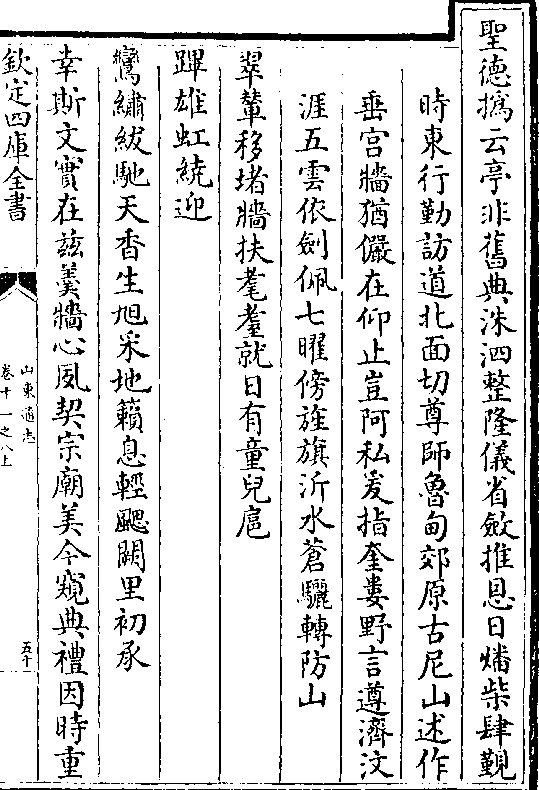 聖德撝云亭非舊典洙泗整隆儀省斂推恩日燔柴肆覲
時東行勤訪道北面切尊師魯甸郊原古尼山述作
垂宫牆猶儼在仰止豈阿私爰指奎婁野言遵濟汶
涯五雲依劍佩七曜傍旌旗沂水蒼驪轉防山
翠輦移堵牆扶耄耋就日有童兒扈
蹕雄虹繞迎
鸞繡紱馳天香生旭采地籟息輕颸闕里初承
幸斯文實在兹羹牆心夙契宗廟美今窺典禮因時重
欽定四庫全書
山東通志
卷十一之八上
五十